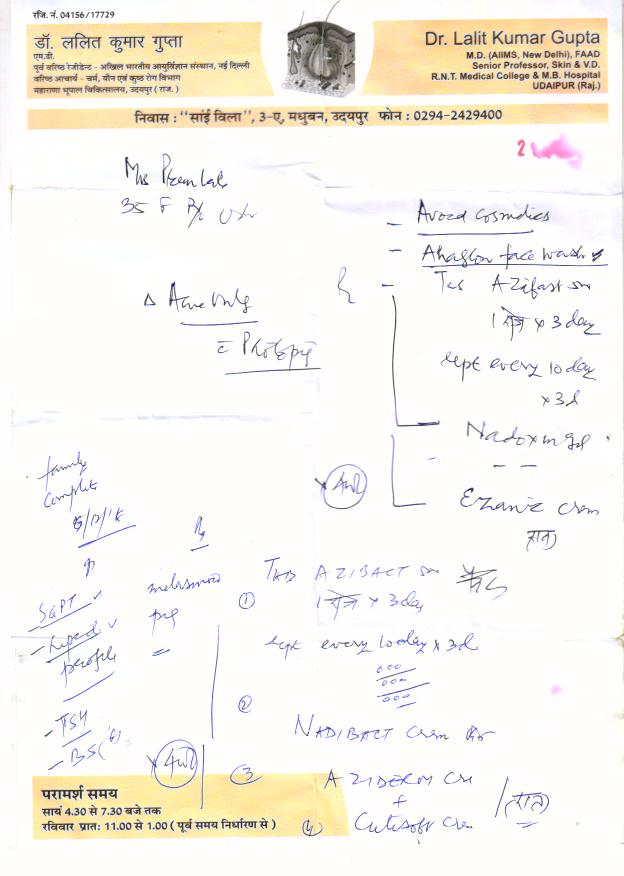 रजि. नं. 04156/17729
डॉ. ललित कुमार गुप्ता
एम.डी.
पूर्व वरिष्ठ रेजीडेन्ट - अखिल भारतीय आयुर्विज्ञान संस्थान, नई दिल्ली
वरिष्ठ आचार्य - चर्म, यौन एवं कुष्ठ रोग विभाग
महाराणा भूपाल चिकित्सालय, उदयपुर ( राज. )
Dr. Lalit Kumar Gupta
M.D. (AIIMS, New Delhi), FAAD
Senior Professor, Skin & V.D.
R.N.T. Medical College & M.B. Hospital
UDAIPUR (Raj.)
निवास : "सांई विला", 3-ए, मधुबन, उदयपुर फोन : 0294-2429400
2
35 F
- Avoid cosmetics
- Ahaglow face wash
- Tab Azifast 500
1 रोज x 3 day
rept every 10 day
x 3d
Nadoxin gel
Ezanic crem
(रात)
x 4wk
family
complete
SGPT
- Lipid
profile
- TSH
- BS
x 4wk
① TAB AZIBACT 500
1 रोज x 3 day
rept every 10 day x 3d
② NADIBACT Crem
③ AZIDERM Cre
+
④ Cutisoft Crem / (रात)
परामर्श समय
सायं 4.30 से 7.30 बजे तक
रविवार प्रातः 11.00 से 1.00 ( पूर्व समय निर्धारण से )